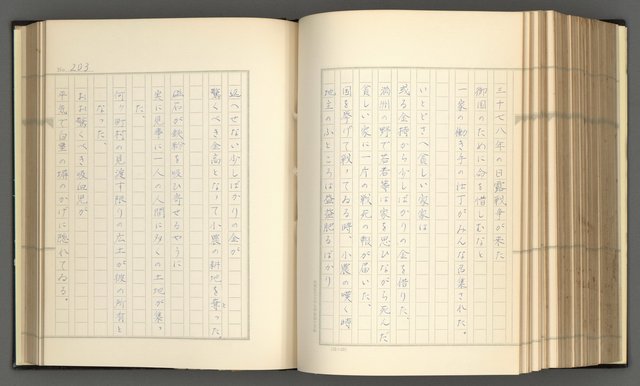 三十七八年の日露戦争が来た
御国のために命を惜しむなと
一家の働き手の壮丁がみんな召集された。
いとどさへ貧しい家家は
或る金持から少しばかりの金を借りた。
満洲の野で若者等は家を思ひながら死んだ
貧しい家に一片の戦死の報が届いた。
国を挙げて戦ってゐる時、小農の嘆く時
地主のふところは益益肥るばかり
No. 203
返へせない少しばかりの金が
驚くべき金高となって小農の耕地を奪った。
磁石が鉄粉を吸ひ寄せるやうに
実に見事に一人の人間に多くの土地が集っ
た。
何々町村の見渡す限りの広土が彼の所有と
なった。
おお驚くべき吸血鬼が
平気で白壁の塀のかげに隠れてゐる。